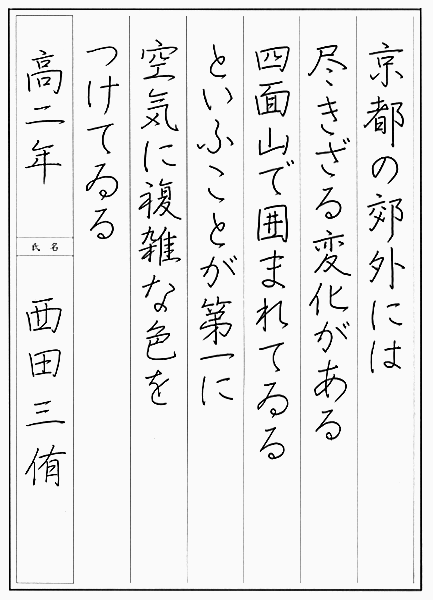 京都の郊外には
尽きざる変化がある
四面山で囲まれてゐる
といふことが第一に
空気に複雑な色を
つけてゐる
高二年
氏名
西田三侑